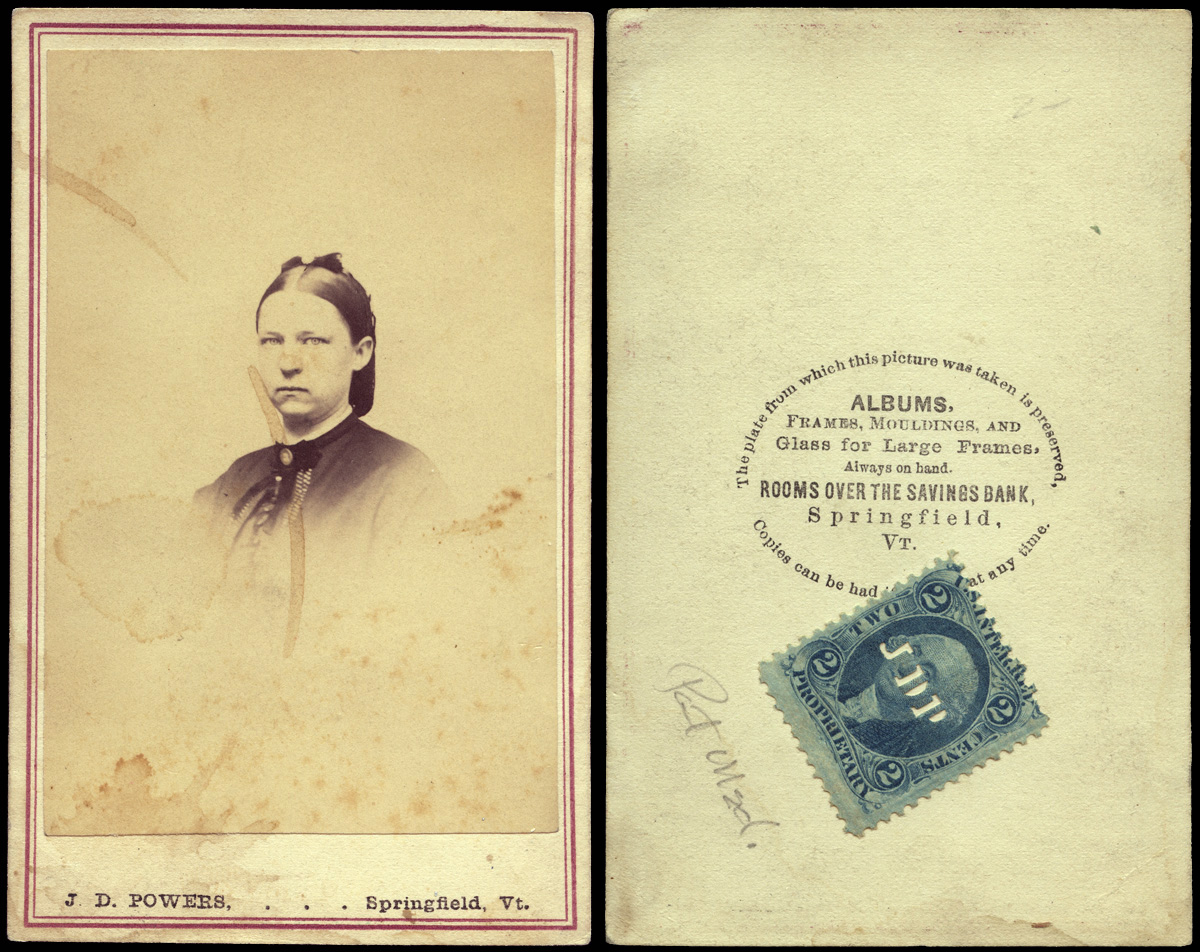 J. D. POWERS, . . . Springfield, Vt.
The plate from which this picture was taken is preserved,
ALBUMS,
FRAMES, MOULDINGS, AND
Glass for Large Frames,
Always on hand.
ROOMS OVER THE SAVINGS BANK,
Springfield,
VT.
Copies can be had at any time.
U.S. INTER. REV.
2 TWO 2
JDP
PROPRIETARY
2 CENTS 2